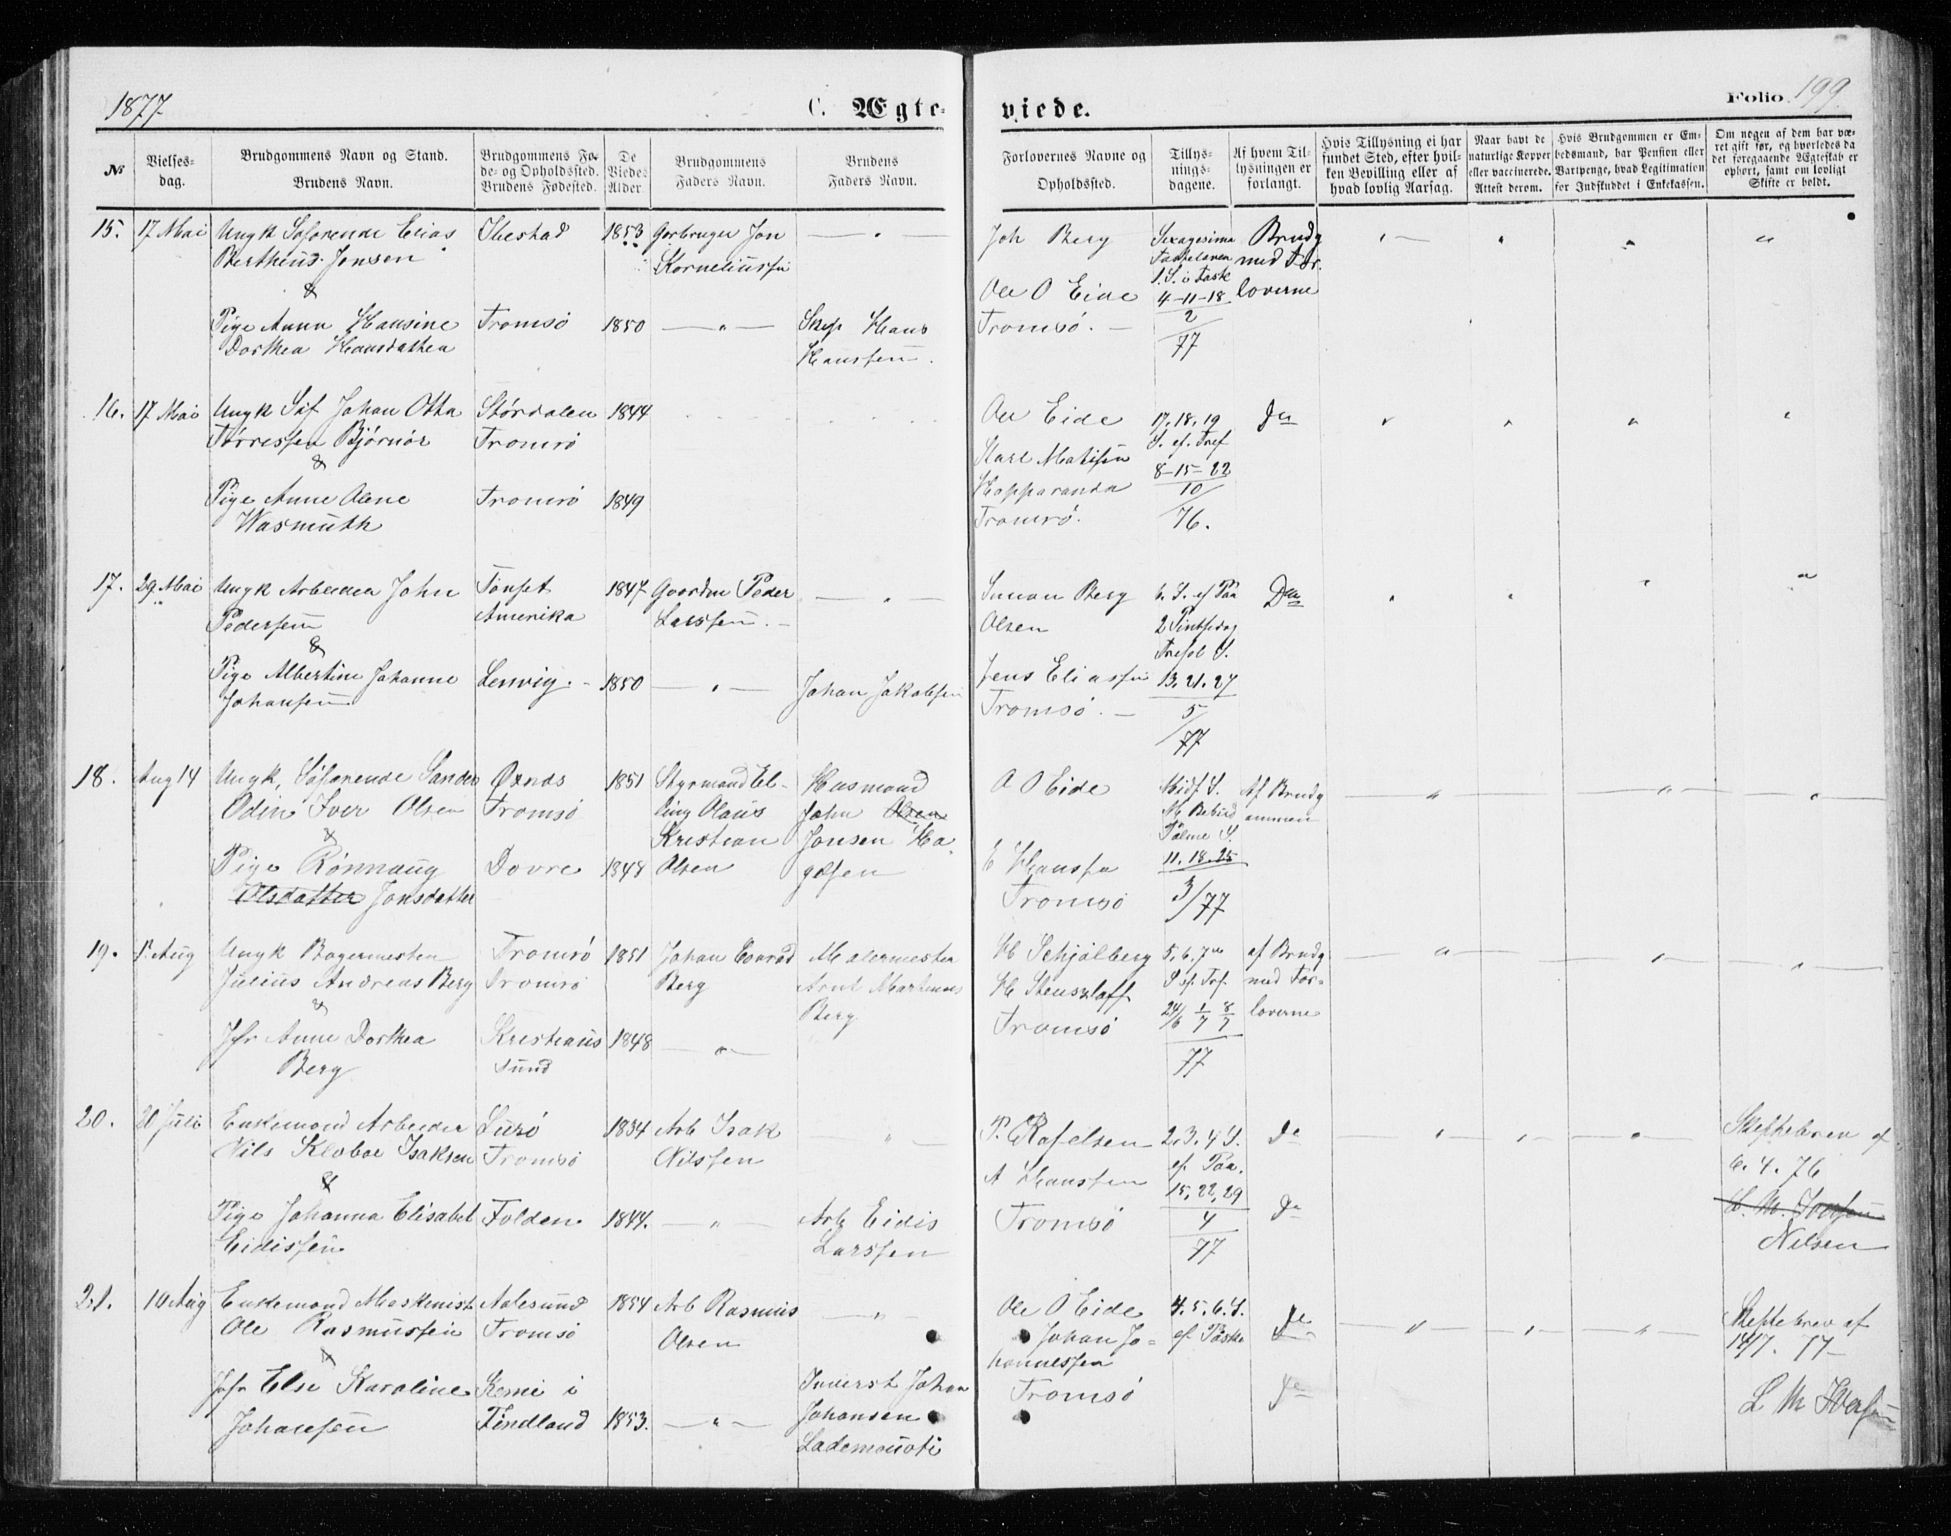 1877
C. Ægte-
viede.
Folio 199.
No
Vielses-
dag.
Brudgommens Navn og Stand.
Brudens Navn.
Brudgommens Fø-
de- og Opholdssted.
Brudens Fødested.
De
Viedes
Alder.
Brudgommens
Faders Navn.
Brudens
Faders Navn.
Forlovernes Navne og
Opholdssted.
Tillys-
nings-
dagene.
Af hvem Til-
lysningen er
forlangt.
Hvis Tillysning ei har
fundet Sted, efter hvil-
ken Bevilling eller af
hvad lovlig Aarsag.
Naar havt de
naturlige Kopper
eller vaccinerede.
Attest derom.
Hvis Brudgommen er Em-
bedsmand, har Pension eller
Vartpenge, hvad Legitimation
for Indskuddet i Enkekassen.
Om nogen af dem har væ-
ret gift før, og hvorledes da
det foregaaende Ægteskab er
ophørt, samt om lovligt
Skifte er holdt.
15. 17 Mai Ungk Søfarende Elias Ibestad 1853 Gbruger Jon
Bertheus Jensen Korneliussen
&
Pige Anna Hansine Tromsø 1850 Skip Hans
Dorthea Hansdatter Hanssen.
Joh Berg Sexagesima Brudg
Fastelavn med For-
Ole O Eide 1. S. i Fast loverne
4-11-18
Tromsø. 2
77
16. 17 Mai Ungk Søf Johan Otto Størdalen 1844
Torressen Bjørnør Tromsø
&
Pige Anne Olene Tromsø 1849
Wasmuth
Ole Eide 17. 18. 19 Do
S. ef. Tref
Karl Matisen 8-15-22
Happaranda 10
Tromsø. 76.
17. 29 Mai Ungk Arbeider John Tønset 1847 Gaardm Peder
Pedersen Amerika Larssen.
&
Pige Albertine Johanne Lenvig. 1850 Johan Jakobsen
Johansen
Simon Berg 6. S. ef Paa Do
Olsen 2 Pintsedag
Trefol S.
Jens Eliassen 13. 21. 27
Tromsø. 5
77
18. Aug 14 Ungk, Søfarende Sander Øxnes 1851 Styrmand El- Husmand
Odin Iver Olsen Tromsø ling Olaus John Olsen
& Kristian Jonsen Ha-
Pige Rønnaug Dovre 1848 Olsen gesen
Olsdatter Jonsdatter
O O Eide Midf S. Af Brudg
M. Bebud ommen
Palme S.
11. 18. 25
E Hanssen 3/77
Tromsø
19. 1. Aug Ungk Bagermester Tromsø 1851 Johan Conrad Malermester
Julius Andreas Berg Tromsø Berg Arnt Martinus
& Berg
Jfr Anne Dorthea Kristians 1848
Berg sund
H Schjølberg 5. 6. 7de af Brudg
H Stenszloff S. ef. Tref. med For-
Tromsø 24/6 1/7 8/7 loverne
77
20. 20 Juli Enkemand Arbeider Lurø 1834 Arb Isak
Nils Klaboe Isaksen Tromsø Nilssen
&
Pige Johanna Elisabet Folden 1844. Arb Eidis
Eidissen Larssen
P. Rafelsen 2. 3. 4 S. Do Skiftebrev af
ef. Paa. 6. 4. 76
A Hanssen 15, 22, 29
Tromsø 4 Do
77 Nilsen
21. 10 Aug Enkemand Maskinist Aalesund 1854 Arb Rasmus
Ole Rasmussen Tromsø Olsen
&
Jfr Else Karoline Kemi i Inderst Johan
Johansen Findland 1853. Johansen
Lademouoti
Ole O Eide 4. 5. 6. S. Do Skiftebrev af
Johan Jo- ef. Paaske 14/7. 77
hannessen
Tromsø Do L M Iversen